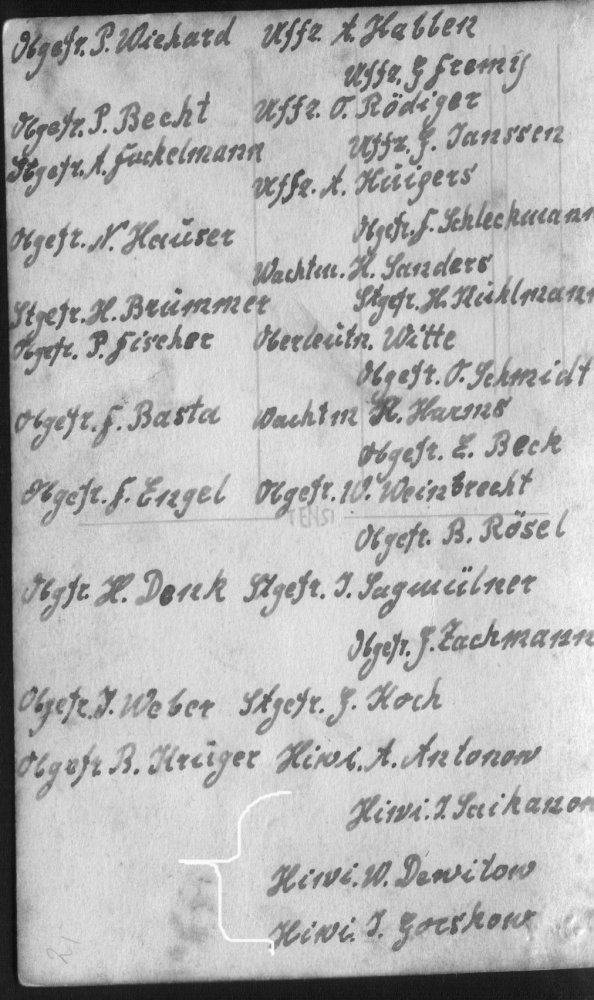 Obgefr. P. Wichard Uffz. A. Habben
Uffz. G. Fremy
Obgefr. P. Becht Uffz. O. Rödiger
Stgefr. A. Fuckelmann Uffz. J. Janssen
Uffz. A. Hüigers
Obgefr. N. Hauser Obgefr. F. Schleckmann
Wachtm. H. Sanders
Stgefr. H. Brümmer Stgefr. H. Kuhlmann
Obgefr. P. Fischer Oberleutn. Witte
Obgefr. O. Schmidt
Obgefr. F. Basta Wachtm R. Harms
Obgefr. E. Beck
Obgefr. F. Engel Obgefr. W. Weinbrecht
Obgefr. B. Rösel
Obgfr. H. Denk Stgefr. J. Sagmülner
Obgefr. J. Zachmann
Obgefr. J. Weber Stgefr. J. Koch
Obgefr B. Krüger Hiwi. A. Antonow
Hiwi. I. Saikanow
Hiwi. W. Dewitow
Hiwi. I. Gorskow
21